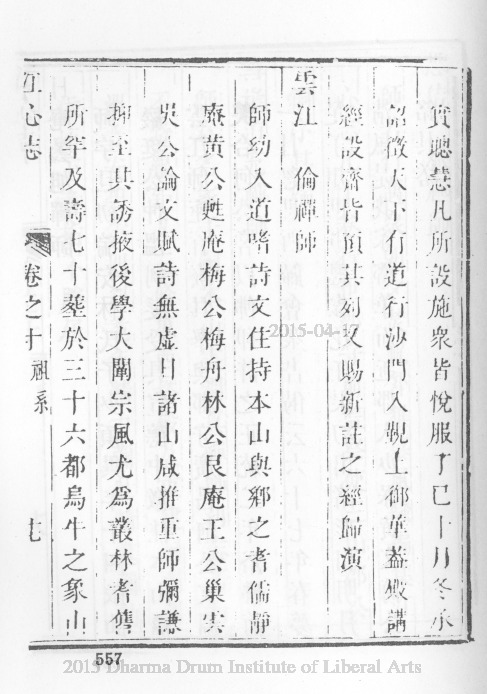 實聰慧凡所設施衆皆悅服丁巳十月冬承
詔徵天下有道行沙門入覲上御華蓋殿講
經設齋皆預其列又賜新註之經歸演
雲江 倫禪師
師幼入道嗜詩文住持本山與鄉之耆儒靜
菴黄公甦庵梅公梅舟林公艮庵王公巢雲
吳公論文賦詩無虛日諸山咸推重師彌謙
抑至其誘掖後學大闡宗風尤爲叢林耆舊
所罕及壽七十塟於三十六都烏牛之象山
江心志 卷之十 祖系 七
2015-04-17
557
2015 Dharma Drum Institute of Liberal Arts